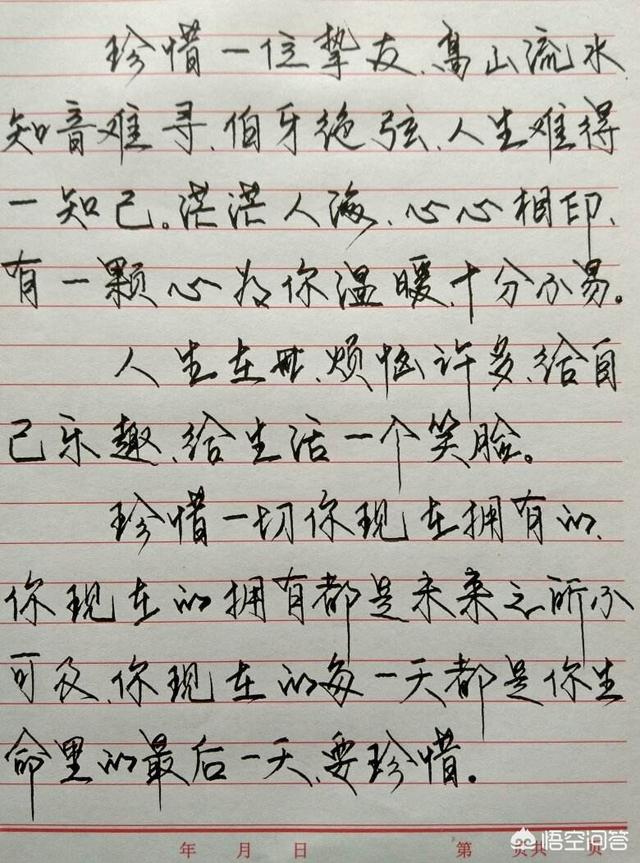 珍惜一位挚友、高山流水
知音难寻、伯牙绝弦、人生难得
一知己。茫茫人海、心心相印、
有一颗心为你温暖、十分不易。
人生在世、烦恼许多、给自
己乐趣、给生活一个笑脸。
珍惜一切你现在拥有的、
你现在的拥有都是未来之所不
可及、你现在的每一天都是你生
命里的最后一天、要珍惜。
年 月 日 第 页共 页
悟空问答